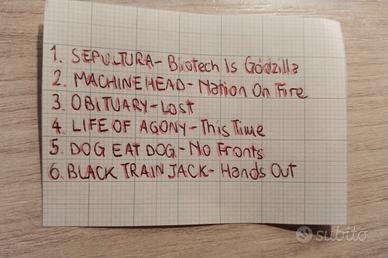 1. SEPULTURA - Biotech Is Godzilla
2. MACHINE HEAD - Nation On Fire
3 OBITUARY - Lost
4 LIFE OF AGONY - This Time
5 DOG EAT DOG - No Fronts
6. BLACK TRAIN JACK - Hands Out
subito